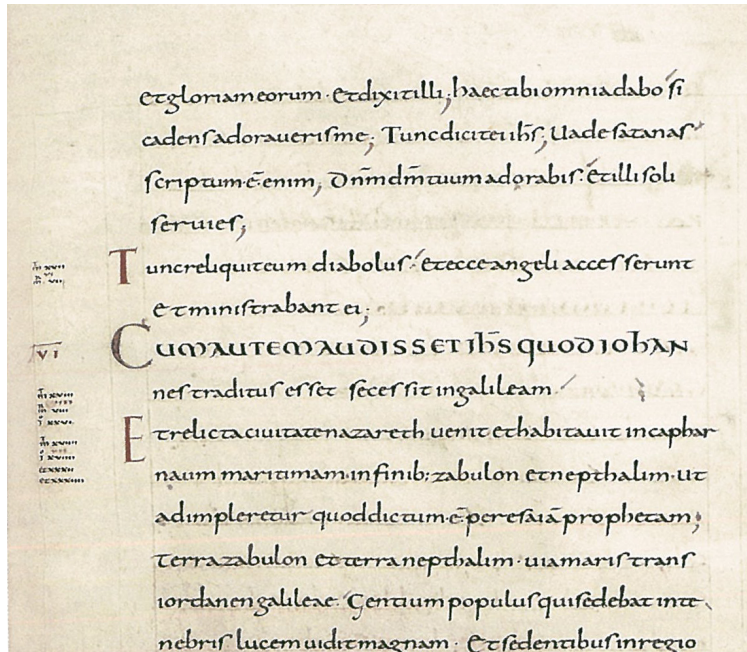 et gloriam eorum · Et dixit illi; haec tibi omnia dabo si
cadens adoraueris me; Tunc dicit ei ihs; Uade satanas
scriptum ē enim; Dnm dm tuum adorabis · et illi soli
seruies;
Tunc reliquit eum diabolus · et ecce angeli accesserunt
et ministrabant ei;
VI
CUM AUTEM AUDISSET IHS QUOD IOHAN
nes traditus esset secessit in galileam
Et relicta ciuitate nazareth uenit et habitauit in caphar
naum maritimam in finib; zabulon et nepthalim · ut
adimpleretur quod dictum ē per esaiā prophetam;
Terra zabulon et terra nepthalim · uia maris trans
iordanen galileae · Gentium populus qui sedebat in te
nebris lucem uidit magnam · Et sedentibus in regio